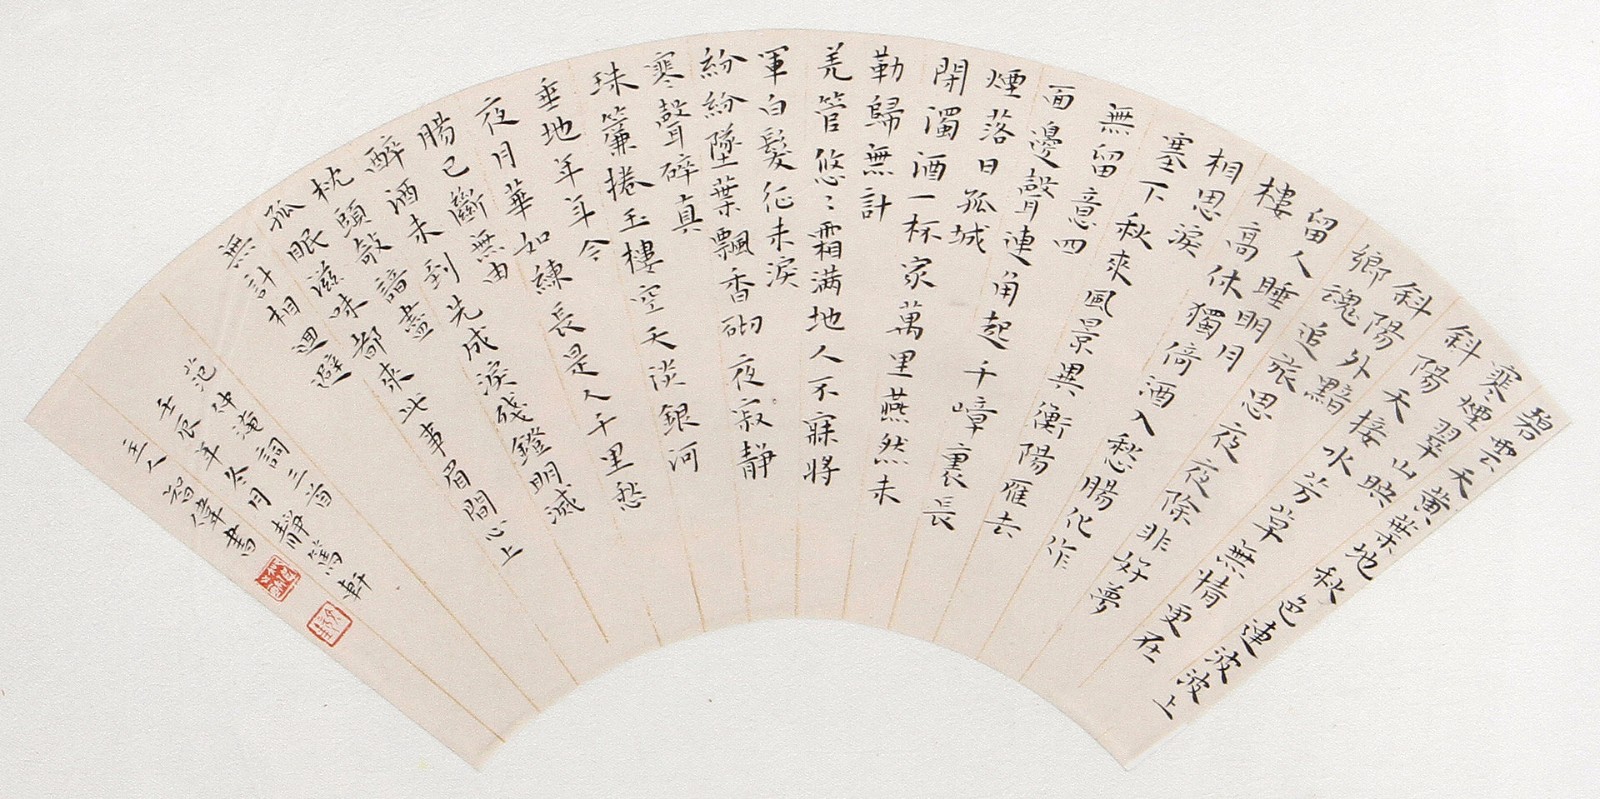 碧雲天黃葉地秋色連波波上
寒煙翠山映
斜陽天接水芳草無情更在
斜陽外黯
鄉魂追旅思夜夜除非好夢
留人睡明月
樓高休獨倚酒入愁腸化作
相思淚
塞下秋來風景異衡陽雁去
無留意四
面邊聲連角起千嶂裏長
煙落日孤城
閉濁酒一杯家萬里燕然未
勒歸無計
羌管悠〻霜滿地人不寐將
軍白髮征夫淚
紛紛墜葉飄香砌夜寂靜
寒聲碎真
珠簾捲玉樓空天淡銀河
垂地年年今
夜月華如練長是人千里愁
腸已斷無由
醉酒未到先成淚殘鐙明滅
枕頭敧諳盡
孤眠滋味都來此事眉間心上
無計相迴避
范仲淹詞三首
壬辰年冬月靜篤軒
主人智偉書